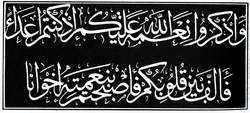 واذكروا نعمة الله عليكم إذ كنتم أعداء
فألف بين قلوبكم فأصبحتم بنعمته إخوانا